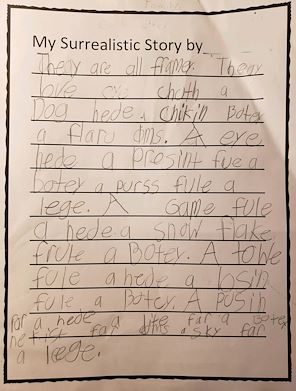 My Surrealistic Story by
They are all
love a
Dog hede a chikin Botey
a flaru dms. A eye
hede a presint fue a
botey a purss fule a
lege. A Game fule
a hede a snow flake
frule a Botey. A towe
fule a hede a losin
fule a Botey. A pusin
for a hede a life far a Botey
far a sky far
a leege.